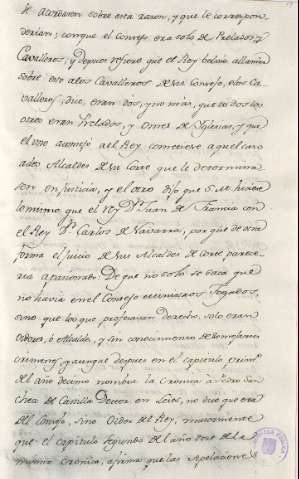 se acordasen sobre esta razon, y que le correspon-
derian; conque el Consejo era solo de Prelados, y
Cavalleros, y depues refiere que el Rey bolvio a llamar
sobre esto a los Cavalleros de su Consejo, e los Ca-
valleros, dice, eran dos, y no mas, que todos los
otros eran Prelados, y Omes de Iglesias, y que
el uno aconsejo al Rey cometiese aquel caso
a dos Alcaldes de su Corte que lo determina-
sen en justicia, y el otro dijo que S.M. hiciese
lo mismo que el rey Dn. Juan de Francia con
el Rey Dn. Carlos de Navarra, por que de otra
forma el juicio de sus Alcaldes de Corte parece-
ria apasionado. De que no solo se saca que
no havia en el Consejo ministros Togados,
sino que los que profesavan derecho, solo eran
Oidores, o Alcaldes, y sin conocimiento de
crimenes, y aunque depues en el capitulo
del año decimo nombra la Cronica a Pedro San-
chez de Castillo Doctor en Leies, no dice que era
del Consejo, sino Oidor del Rey, mayormente
que el capitulo segundo del año seis de la
misma Cronica, afirma que las Apelaciones